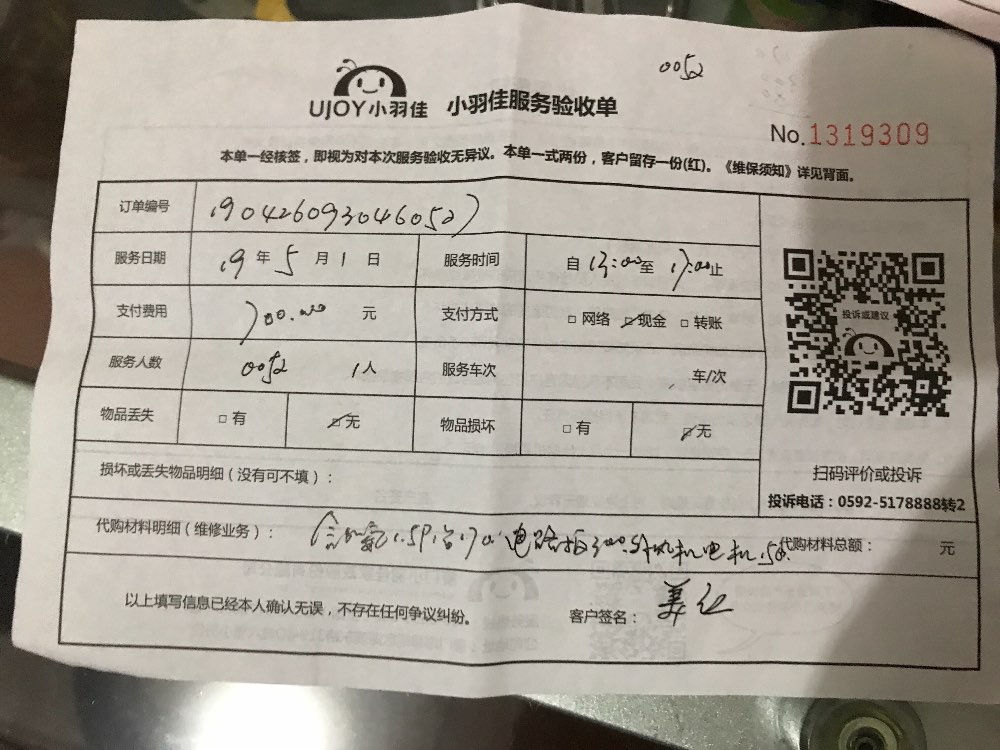 0052
UJOY小羽佳 小羽佳服务验收单
No.1319309
本单一经核签，即视为对本次服务验收无异议。本单一式两份，客户留存一份(红)。《维保须知》详见背面。
订单编号 190426093046052
服务日期 19 年 5 月 1 日 服务时间 自 13:00 至 17:00 止
支付费用 700.00 元 支付方式 □ 网络 ☑ 现金 □ 转账
服务人数 0052 1人 服务车次 车/次
物品丢失 □ 有 ☑ 无 物品损坏 □ 有 ☑ 无
投诉或建议
损坏或丢失物品明细（没有可不填）：
扫码评价或投诉
投诉电话：0592-5178888转2
代购材料明细（维修业务）： 1.5P 电路板300. 外风机电机 代购材料总额： 元
以上填写信息已经本人确认无误，不存在任何争议纠纷。 客户签名：